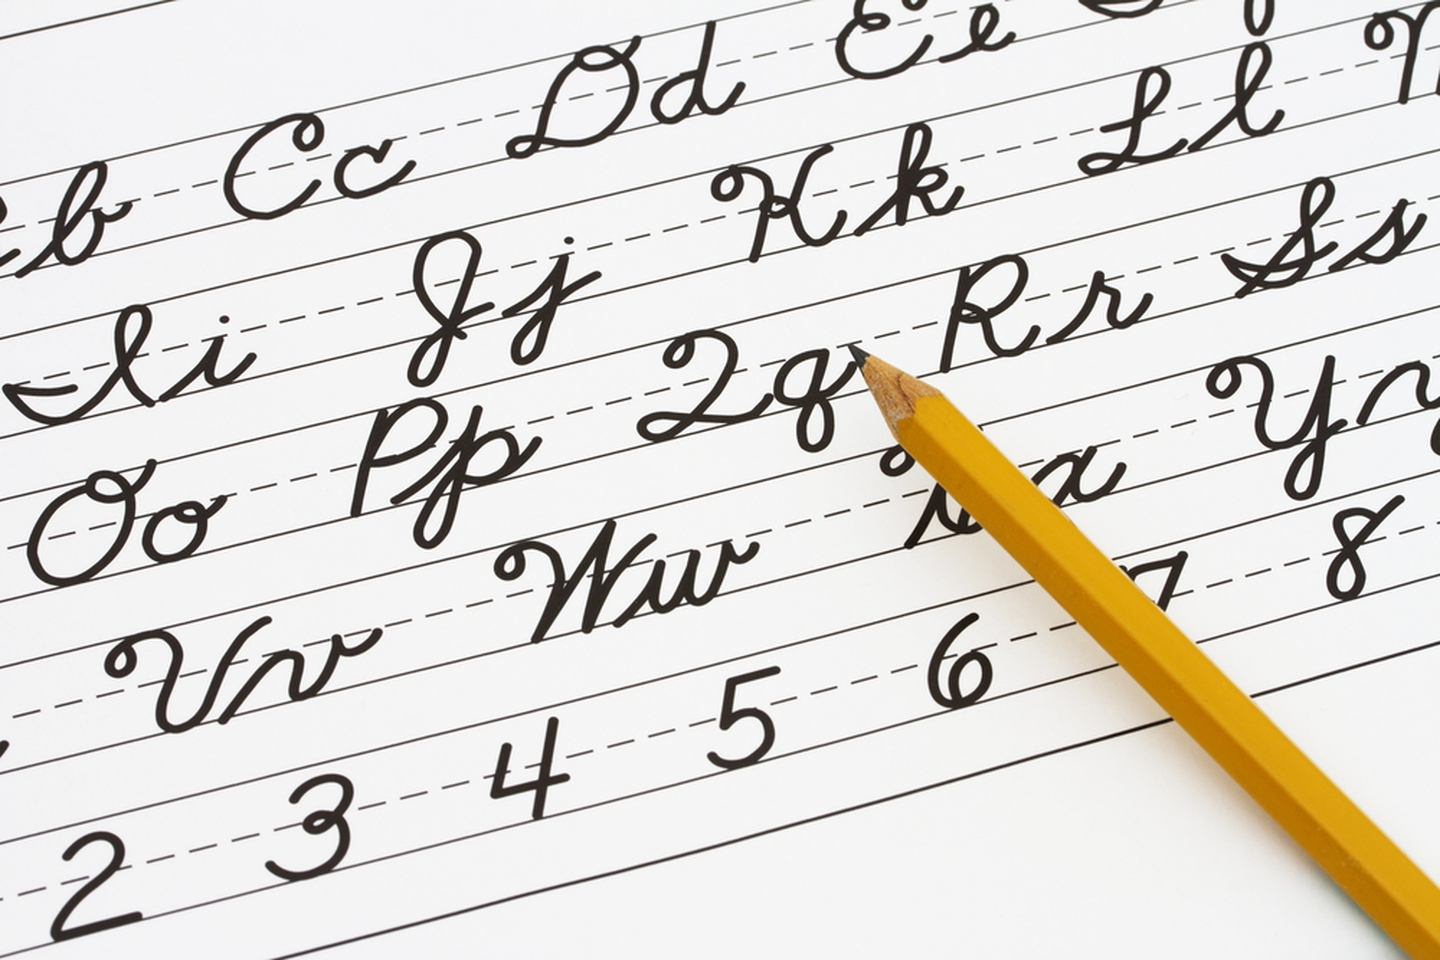 b Cc Dd Ee
Ii Jj Kk Ll
Oo Pp Qq Rr Ss
Vv Ww Yy
2 3 4 5 6 7 8